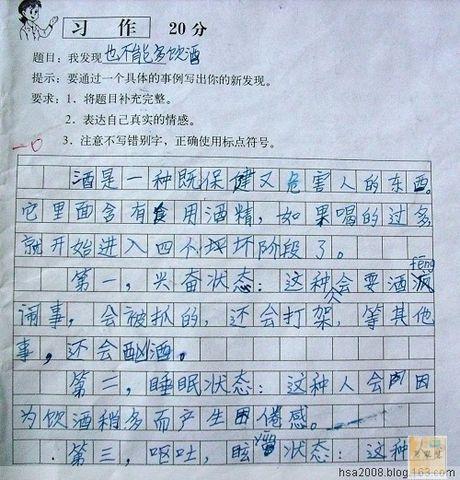 习 作 20分
题目：我发现也不能多饮酒
提示：要通过一个具体的事例写出你的新发现。
要求：1．将题目补充完整。
2．表达自己真实的情感。
3．注意不写错别字，正确使用标点符号。
-0
酒是一种既保健又危害人的东西。
它里面含有食用酒精，如果喝的过多
就开始进入四个坏阶段了。
第一，兴奋状态：这种人会耍酒疯 fēng
闹事，会被抓的，还会打架，等其他
事，还会酗酒。
第二，睡眠状态：这种人会因
为饮酒稍多而产生困倦感。
第三，呕吐，眩晕状态：这种
hsa2008.blog.163.com